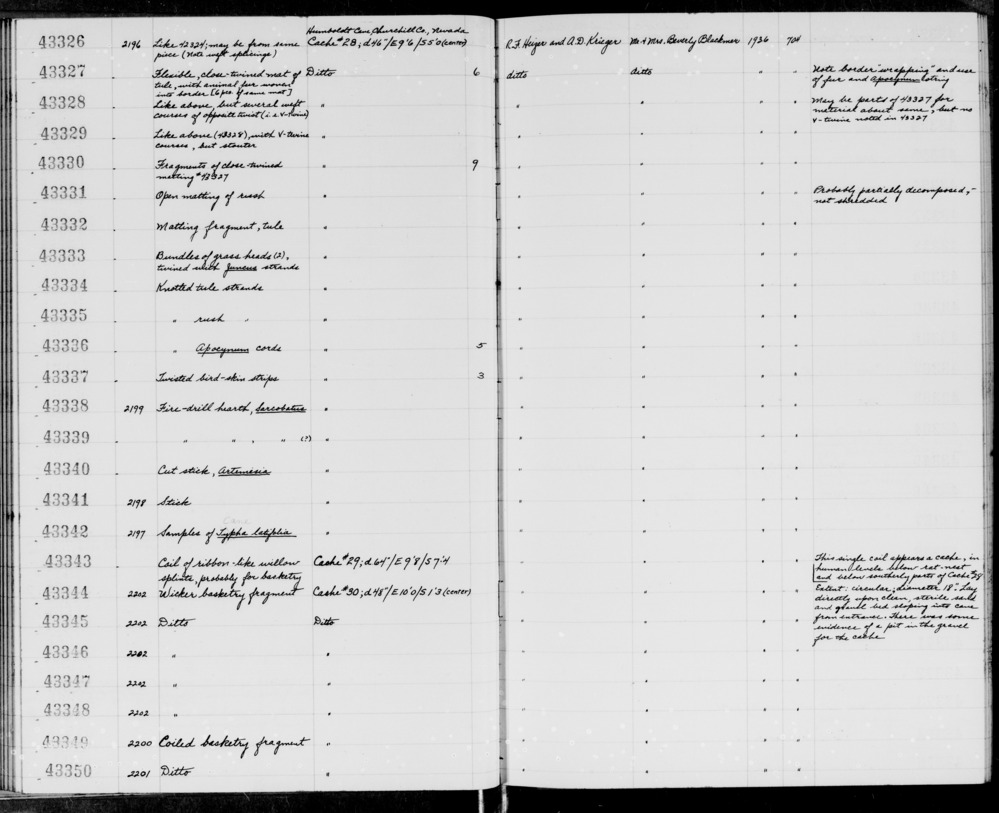 Humboldt Cave, Churchill Co., Nevada
43326 2196 Like 42324; may be from same Cache #28; d 46"/E 9'6/S 5'0 (center) R.F. Heizer and A.D. Krieger Mr. & Mrs. Beverly Blackmer 1936 704
piece (Note weft splicings)
43327 Flexible, close-twined mat of Ditto 6 ditto ditto " " Note border "wrapping" and use
tule, with animal fur woven of fur and Apocynum
into border [6 pcs. of same mat]
43328 Like above, but several weft " " " " " May be parts of 43327 for
courses of opposite twist (i.e. V-twine) material about same, but no
V-twine noted in 43327
43329 Like above (43328), with V-twine " " " " "
courses, but stouter
43330 Fragments of close-twined " 9 " " " "
matting #43327
43331 Open matting of rush " " " " " Probably partially decomposed,
not shredded
43332 Matting fragment, tule " " " " "
43333 Bundles of grass heads (2), " " " " "
twined with Juncus strands
43334 Knotted tule strands " " " " "
43335 " rush " " " " " "
43336 " Apocynum cords " 5 " " " "
43337 Twisted bird-skin strips " 3 " " " "
43338 2199 Fire-drill hearth, Sarcobatus " " " " "
43339 " " , " (?) " " " " "
43340 Cut stick, Artemesia " " " " "
43341 2198 Stick " " " " "
Cane
43342 2197 Samples of Typha latifolia " " " " "
43343 Coil of ribbon-like willow Cache #29; d 64"/E 9'8/S 7'4 " " " " This single coil appears a cache, in
splints, probably for basketry human levels below rat-nest
and below southerly parts of Cache #28
43344 2202 Wicker basketry fragment Cache #30; d 48"/E 10'0/S 1'3 (center) " " " " Extent: circular; diameter 18". Lay
directly upon clean, sterile sand
43345 2202 Ditto Ditto " " " " and gravel bed sloping into cave
from entrance. There was some
evidence of a pit in the gravel
for the cache
43346 2202 " " " " "
43347 2202 " " " " "
43348 2202 " " " " "
43349 2200 Coiled basketry fragment " " " " "
43350 2201 Ditto " " " " "